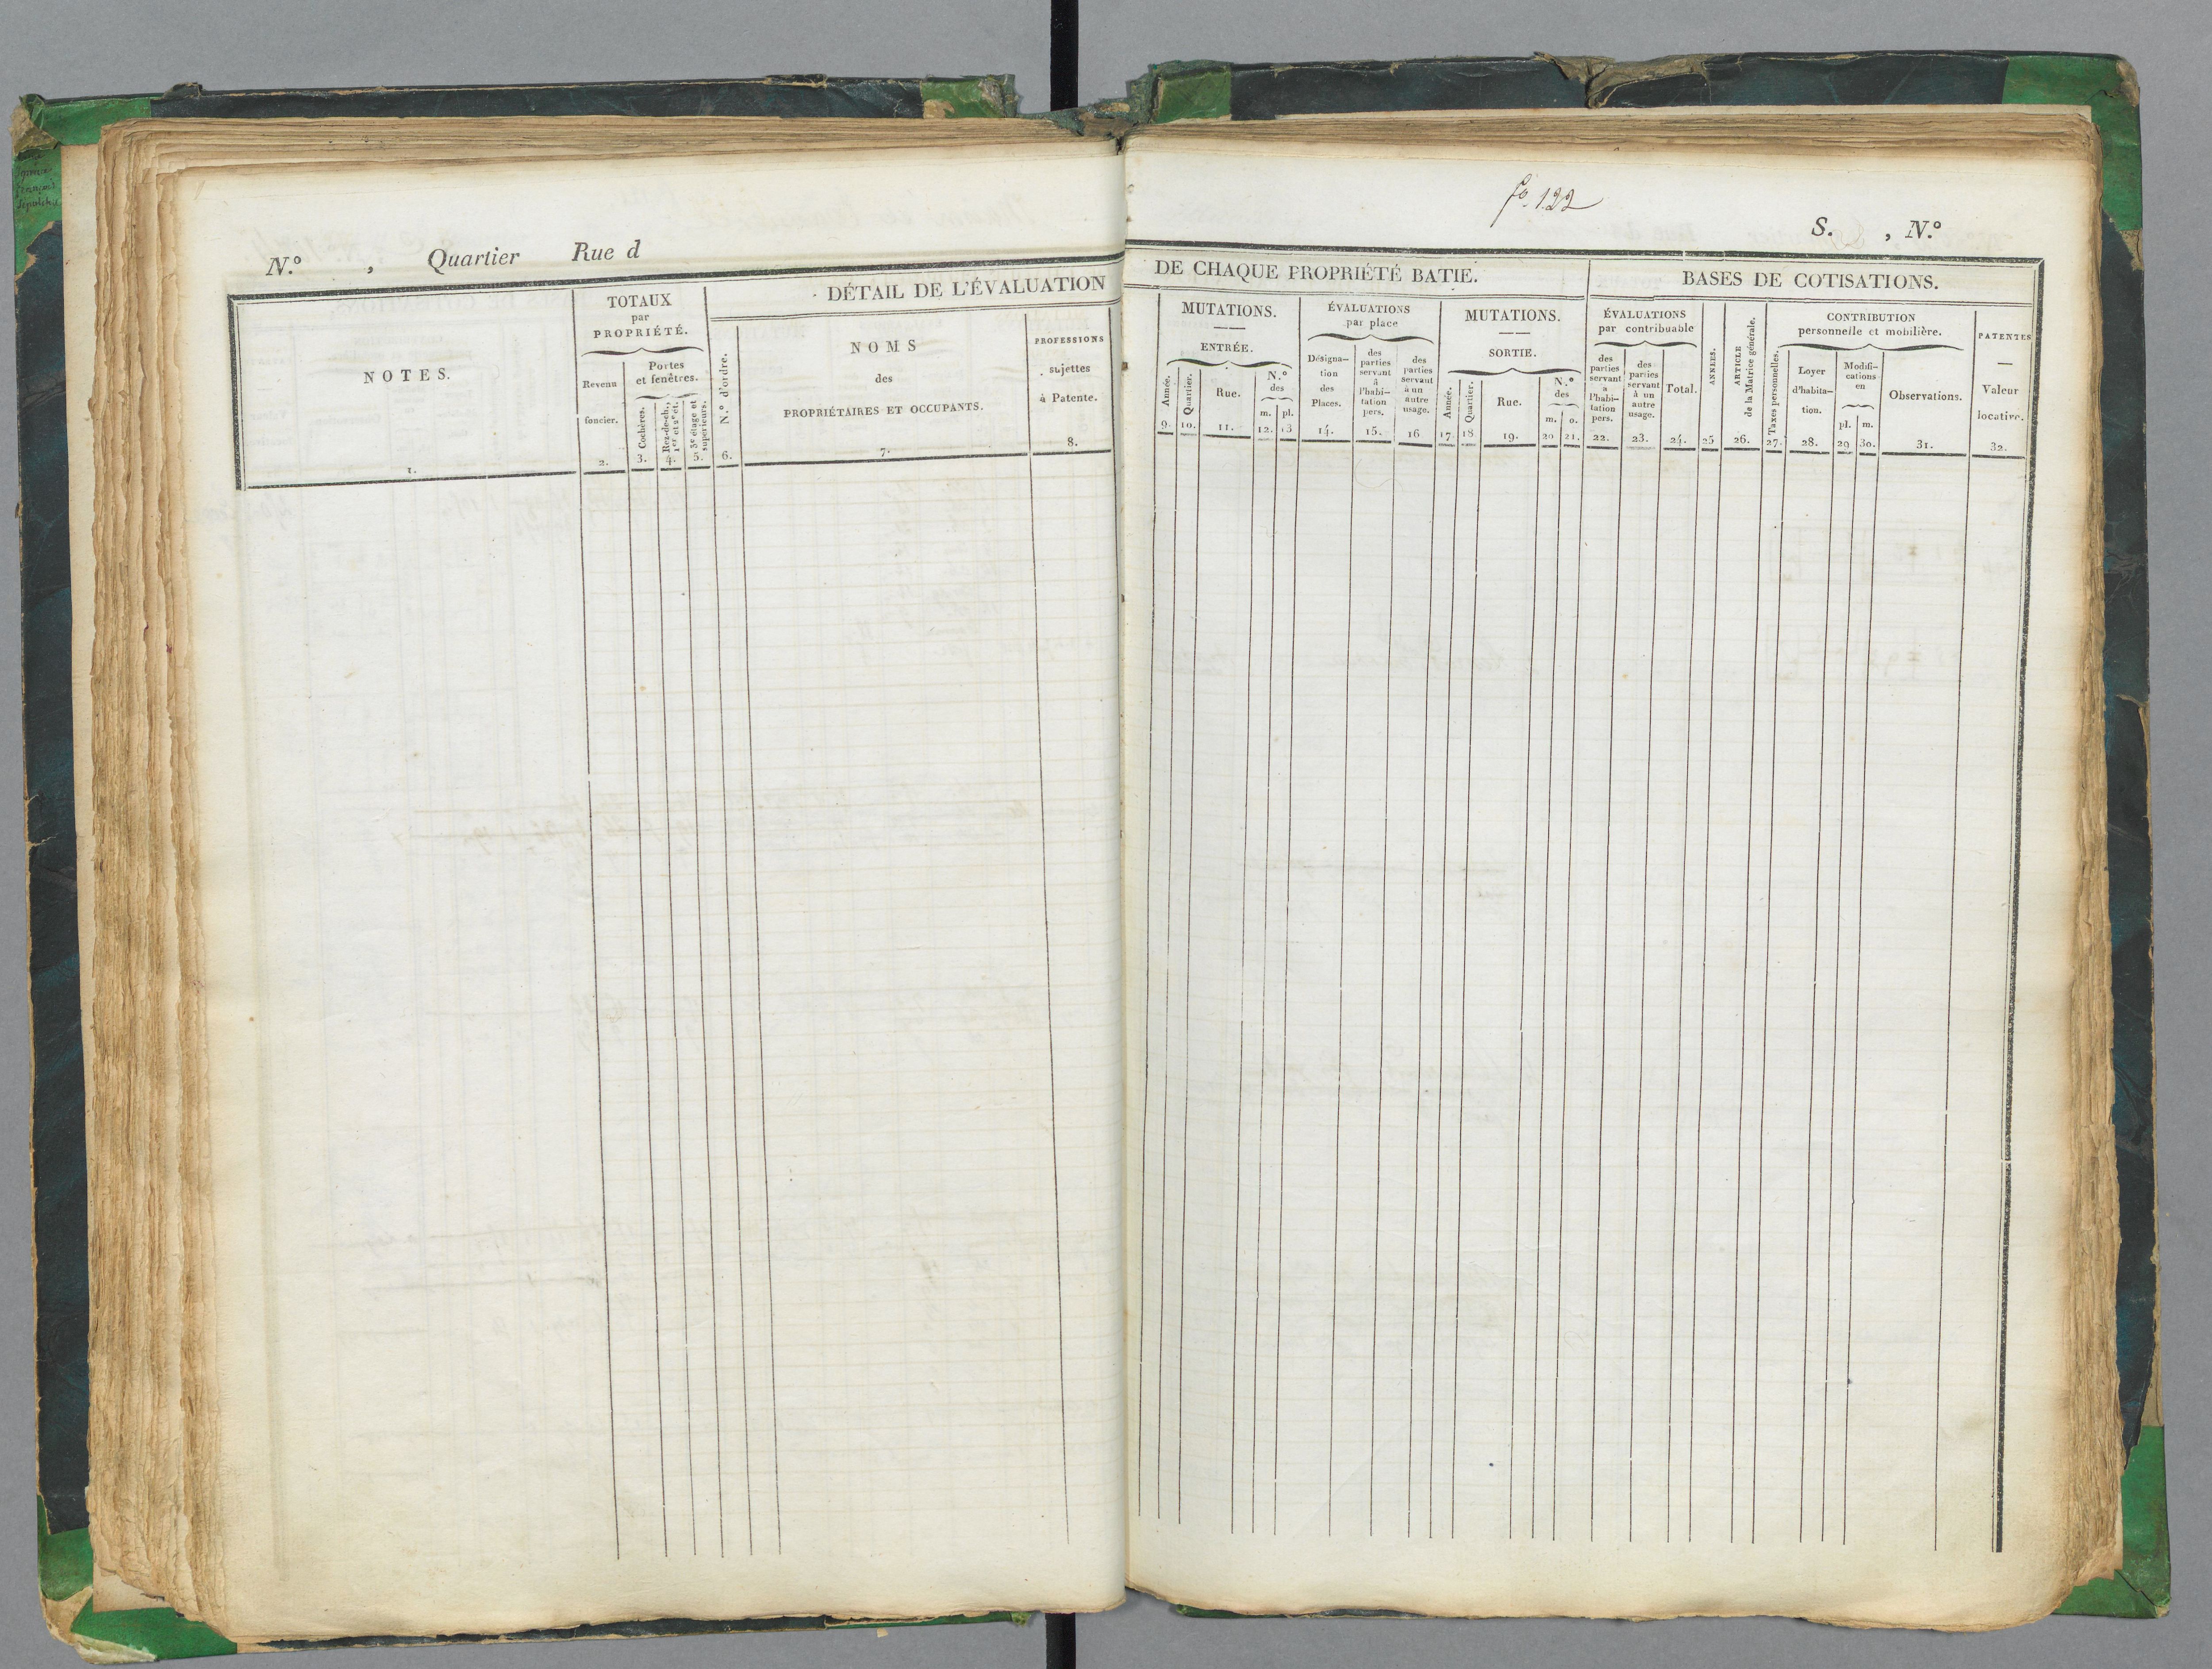 N.º , Quartier Rue d
NOTES.
1.
TOTAUX
par
PROPRIÉTÉ.
Revenu
foncier.
2.
Portes
et fenêtres.
Cochères.
3.
Rez-de-ch.,
1er et 2e ét.
4.
3e étage et
supérieurs.
5.
DÉTAIL DE L'ÉVALUATION
N.º d'ordre.
6.
NOMS
des
PROPRIÉTAIRES ET OCCUPANTS.
7.
PROFESSIONS
sujettes
à Patente.
8.
fo. 122
S. , N.º
DE CHAQUE PROPRIÉTÉ BATIE.
MUTATIONS.
ENTRÉE.
Année.
9.
Quartier.
10.
Rue.
11.
N.º
des
m. pl.
12. 13
ÉVALUATIONS
par place
Désigna-
tion
des
Places.
14.
des
parties
servant
à
l'habi-
tation
pers.
15.
des
parties
servant
à un
autre
usage.
16
MUTATIONS.
SORTIE.
Année.
17.
Quartier.
18
Rue.
19.
N.º
des
m. o.
20 21.
BASES DE COTISATIONS.
ÉVALUATIONS
par contribuable
des
parties
servant
à
l'habi-
tation
pers.
22.
des
parties
servant
à un
autre
usage.
23.
Total.
24.
ANNÉES.
25
ARTICLE
de la Matrice générale.
26.
Taxes personnelles.
27.
CONTRIBUTION
personnelle et mobilière.
Loyer
d'habita-
tion.
28.
Modifi-
cations
en
pl. m.
29 30.
Observations.
31.
PATENTES
Valeur
locative.
32.